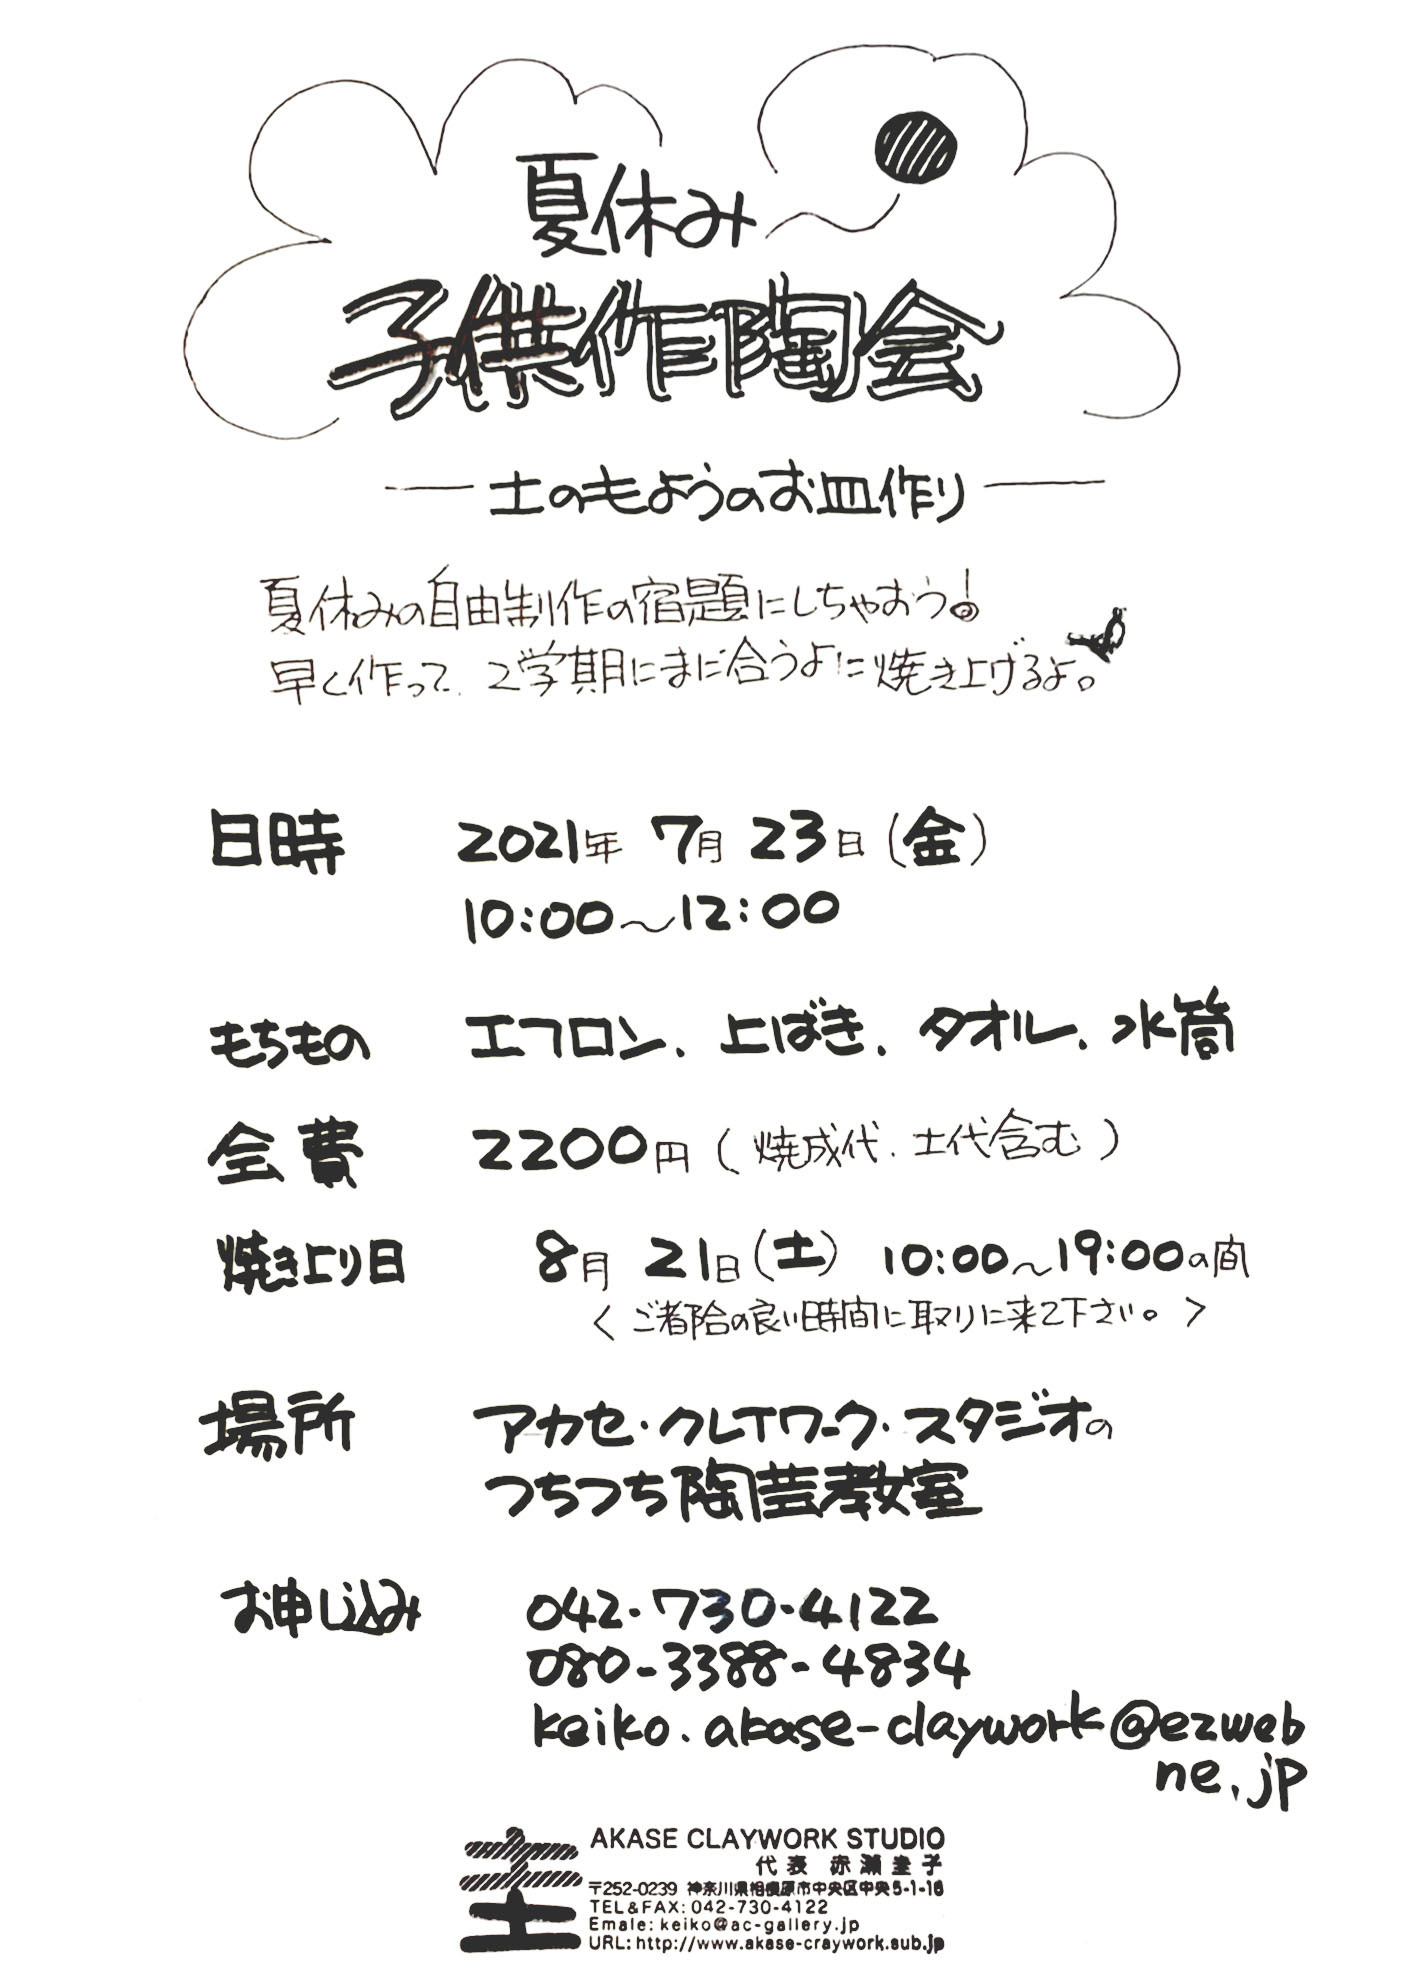 夏休み
子供作陶会
土のもようのお皿作り
夏休みの自由制作の宿題にしちゃおう!
早く作って、2学期にまに合うように焼き上げるよ。
日時 2021年 7月 23日(金)
10:00〜12:00
もちもの エプロン、上ばき、タオル、水筒
会費 2200円(焼成代、土代含む)
焼き上り日 8月 21日(土) 10:00〜19:00の間
〈ご都合の良い時間に取りに来て下さい。〉
場所 アカセ・クレイワーク・スタジオの
つちつち陶芸教室
お申し込み 042-730-4122
080-3388-4834
keiko.akase-claywork@ezweb
ne.jp
AKASE CLAYWORK STUDIO
代表 赤瀬圭子
〒252-0239 神奈川県相模原市中央区中央5-1-16
TEL&FAX:042-730-4122
Emale:keiko@ac-gallery.jp
URL:http://www.akase-craywork.sub.jp